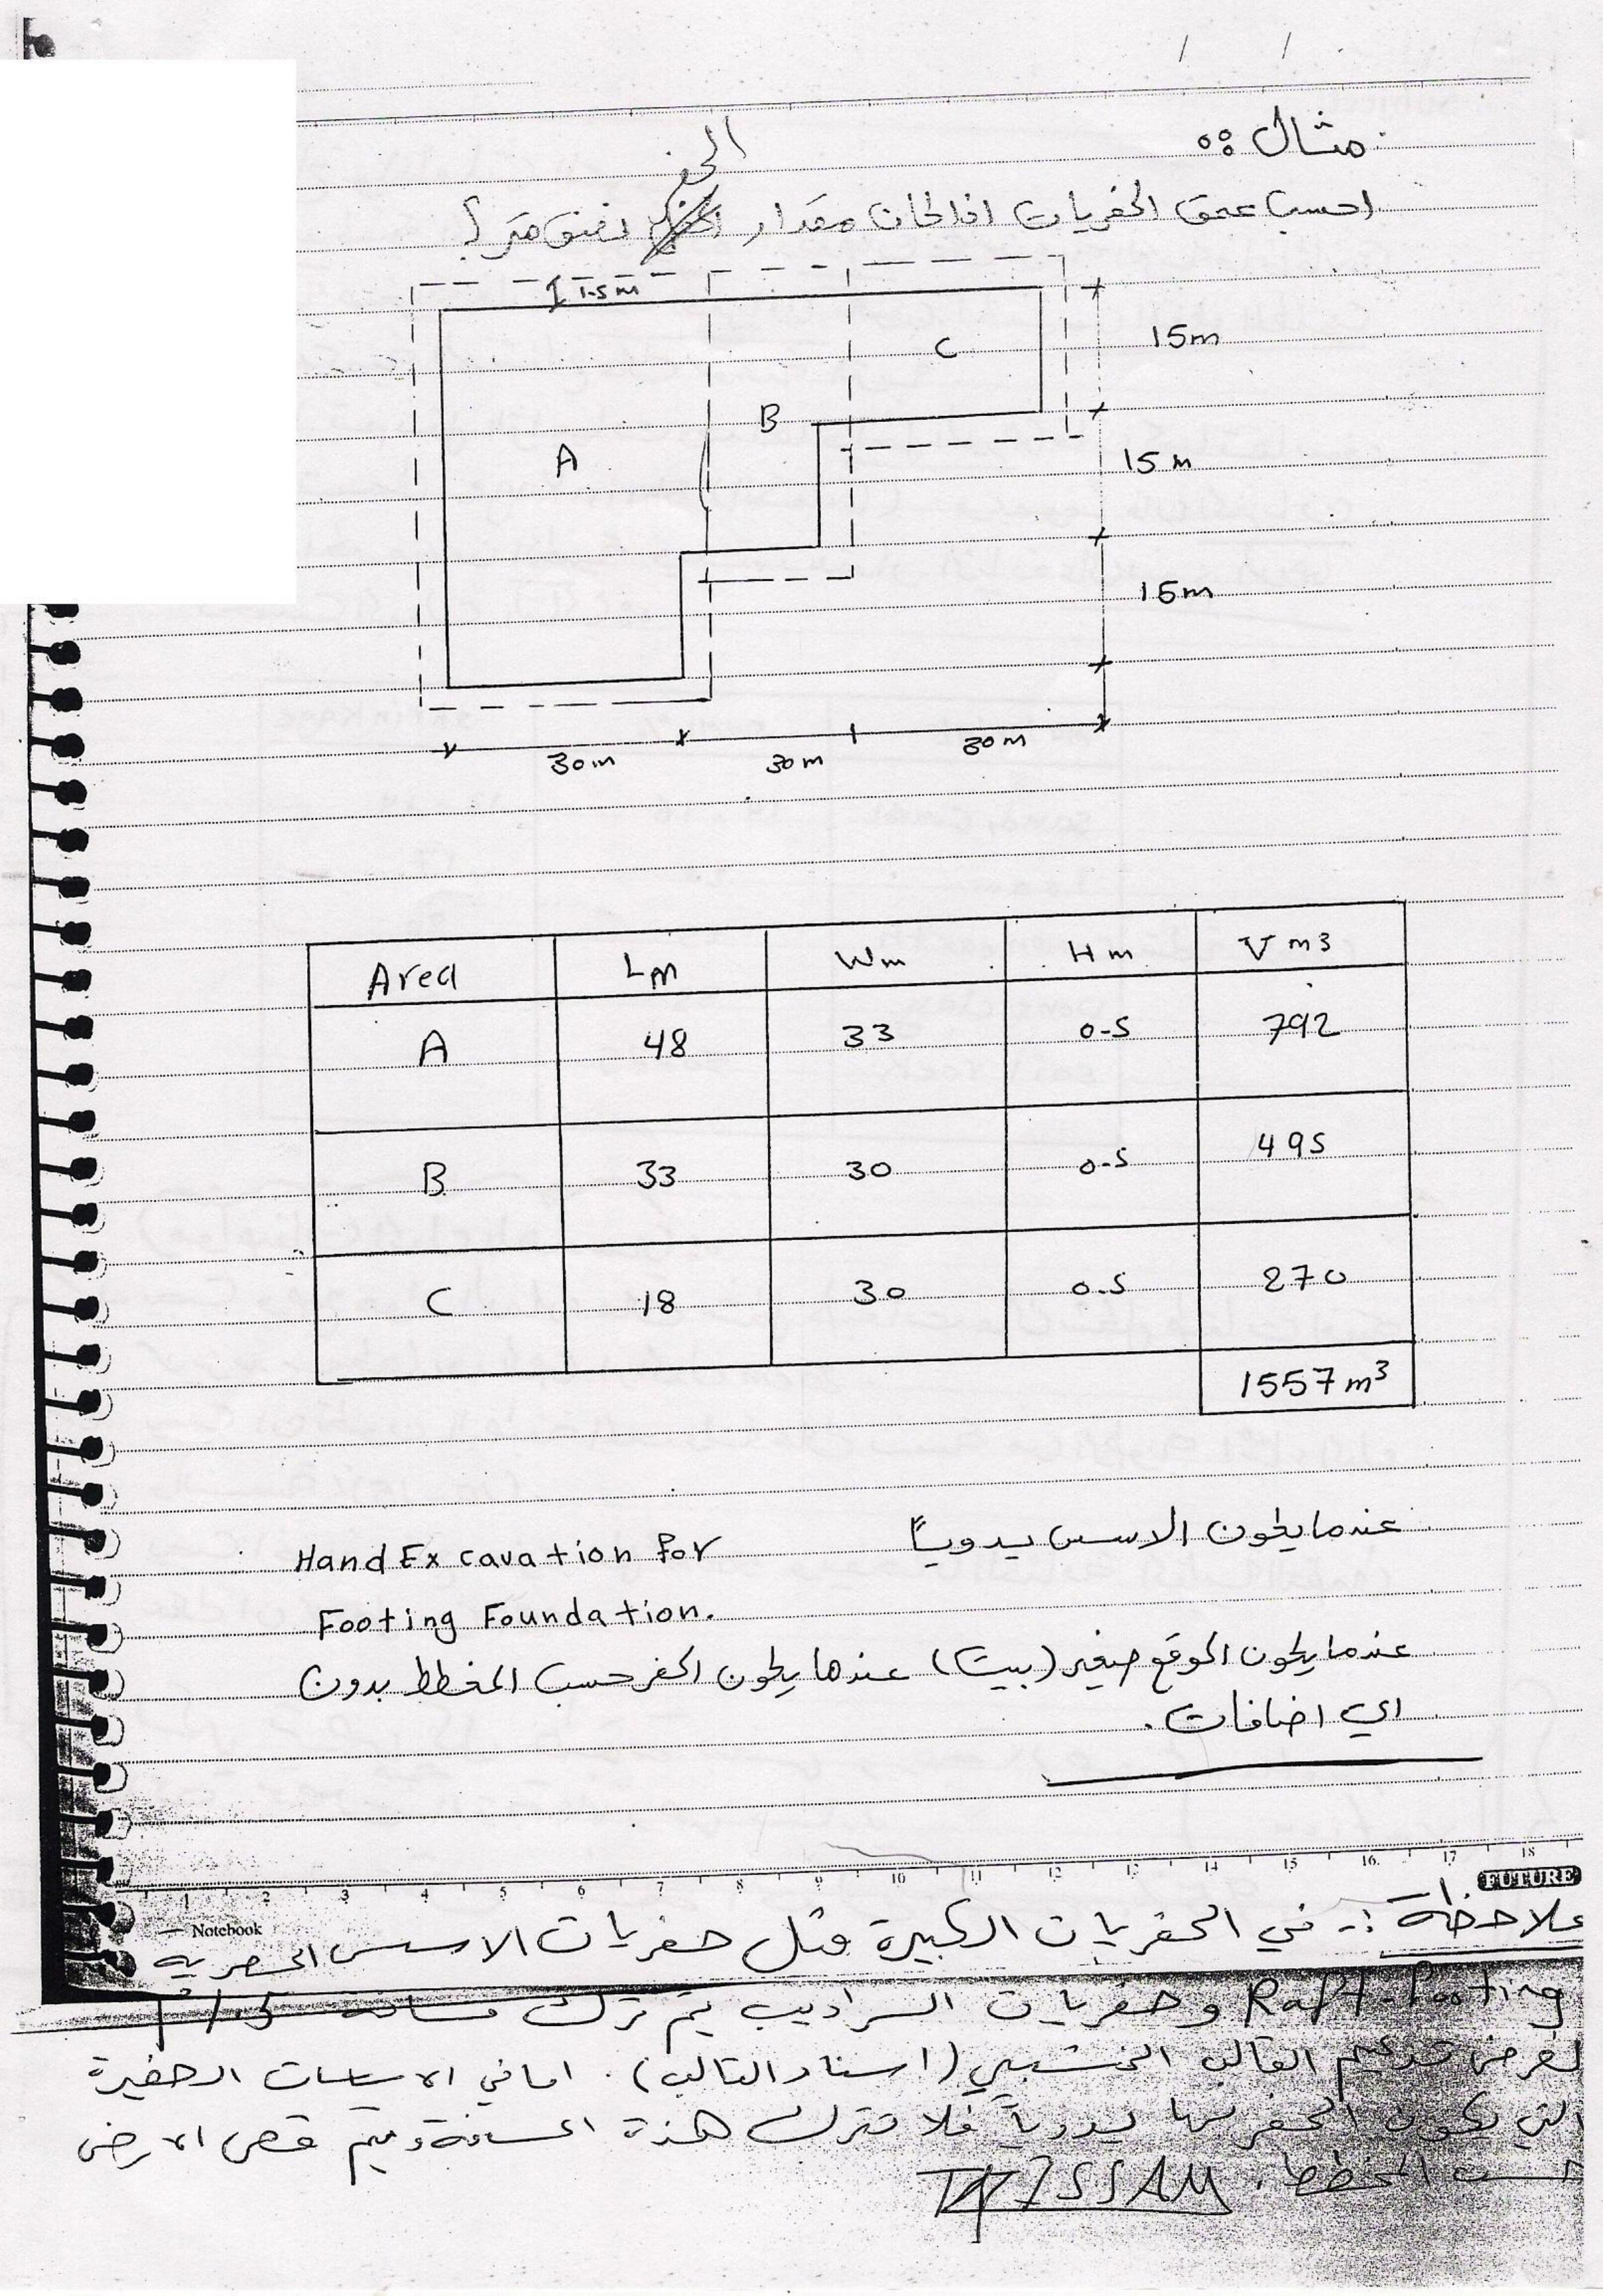 مثال:
الحفر
احسب عمق الحفريات اذا كان مقدار نصف متر؟
1.5m
C
15m
B
A
15m
15m
30m 30m 30m
Area Lm Wm Hm Vm3
A 48 33 0.5 792
B 33 30 0.5 495
C 18 30 0.5 270
1557m³
عندما يكون الاسس يدوياً
Hand Excavation For
Footing Foundation.
عندما يكون الموقع صغير (بيت) عندها يكون الحفر حسب المخطط بدون
اي اضافات.
1 2 3 4 5 6 7 8 9 10 11 12 13 14 15 16 17 18
FUTURE
Notebook
ملاحظة :- في الحفريات الكبيرة مثل حفريات الاسس الحصرية
Raft-Footing وحفريات السراديب يتم ترك مسافة 1.5 م
لغرض تدعيم القالب الخشبي (اسناد القالب). اما في الاساسات الصغيرة
التي يكون الحفر لها يدوياً فلا تترك هذة المسافة ويتم قص الارض
حسب المخطط.